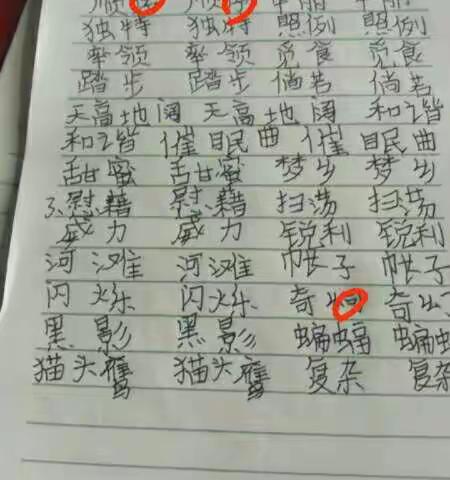 独特 独特 照例 照例
率领 率领 觅食 觅食
踏步 踏步 倘若 倘若
天高地阔 天高地阔 和谐
和谐 催眠曲 催眠曲
甜蜜 甜蜜 梦乡 梦乡
慰藉 慰藉 扫荡 扫荡
威力 威力 锐利 锐利
河滩 河滩 帐子 帐子
闪烁 闪烁 奇 奇
黑影 黑影 蝙蝠 蝙
猫头鹰 猫头鹰 复杂 复杂